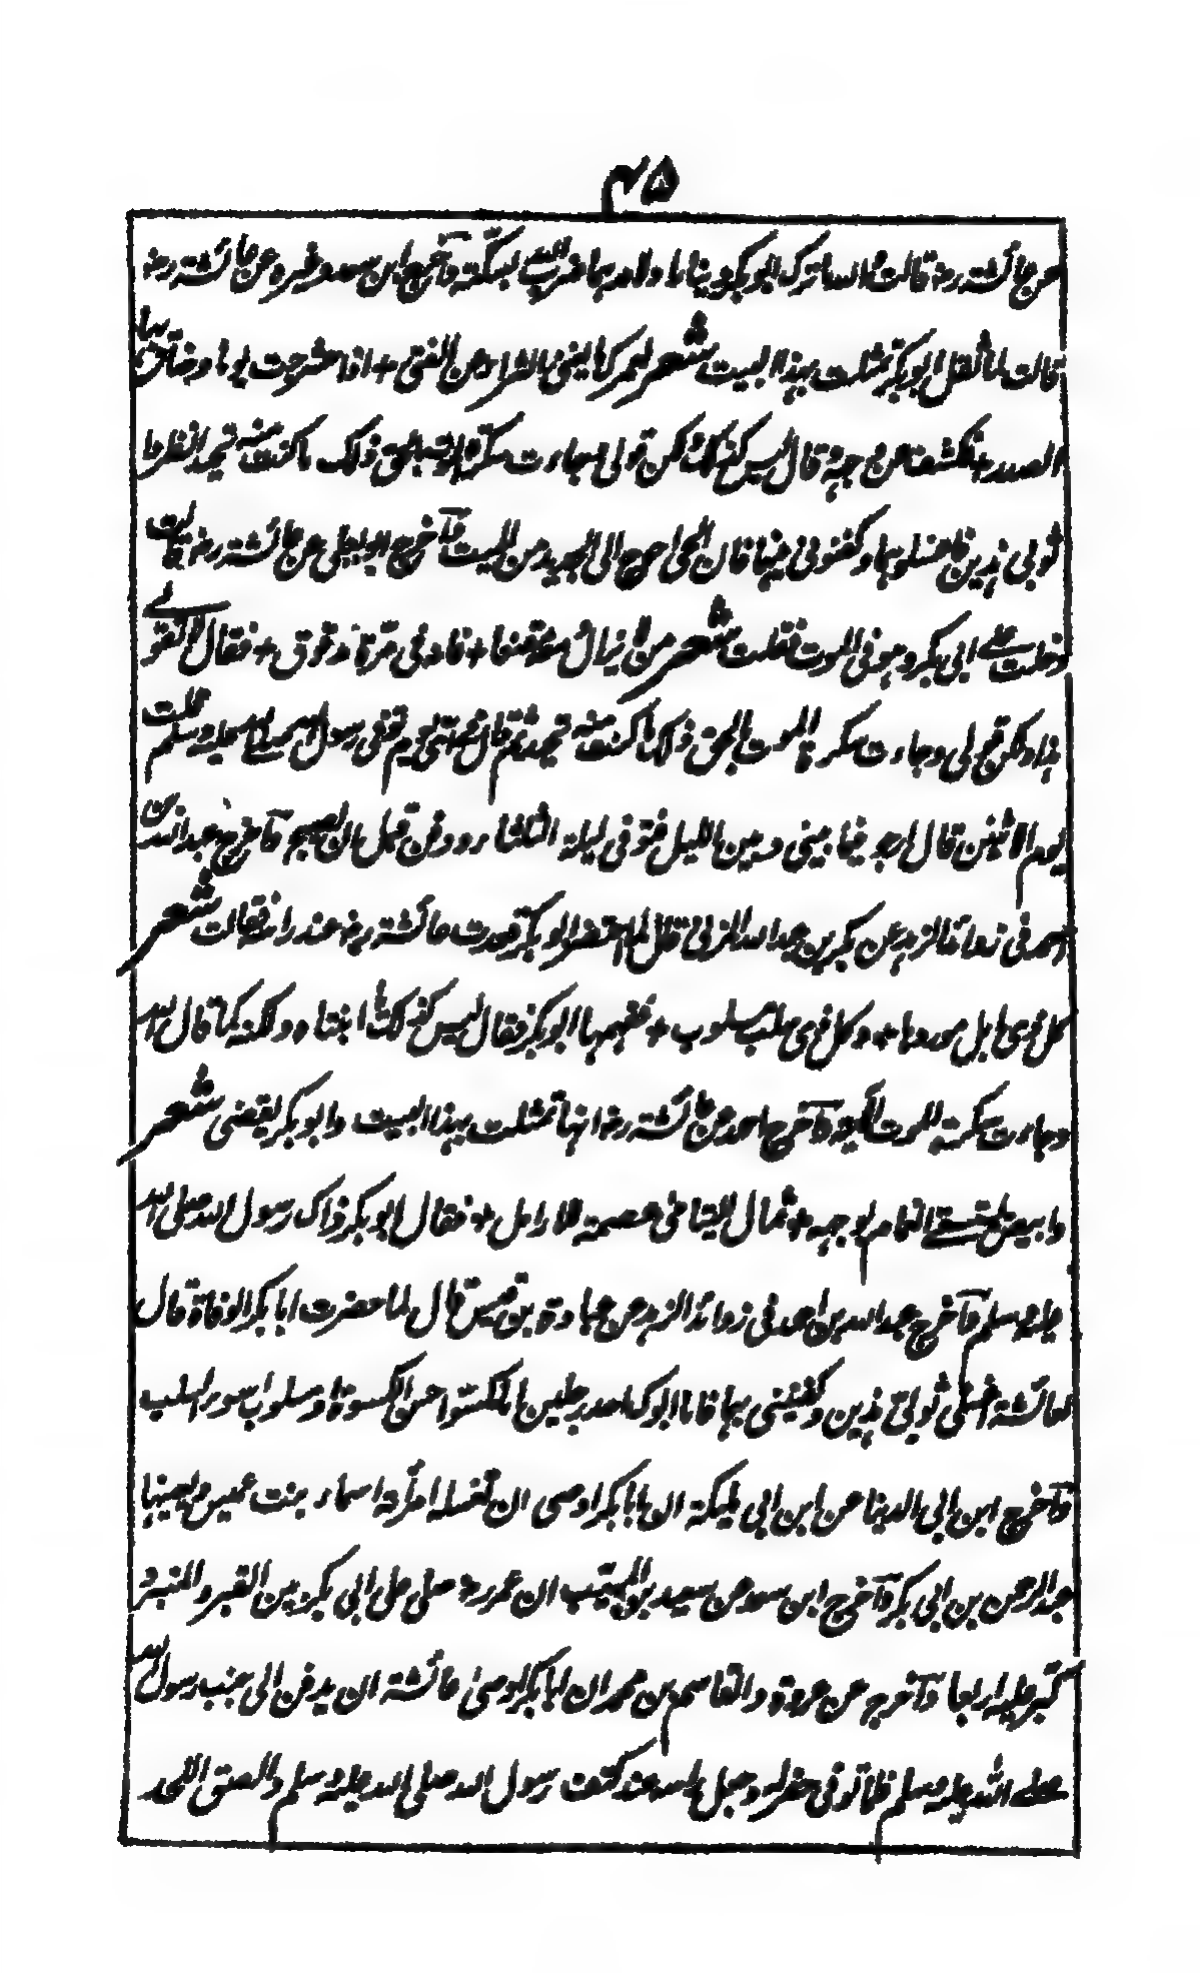 ۴۵
عن عائشة رض قالت والله ما ترك ابو بكر دينارا ولا درهما ضرب الله سكته وآخرج ابن سعد وغيره عن عائشة رض
قالت لما ثقل ابو بكر تمثلت بهذا البيت شعر لعمرك ما يغنى الثراء عن الفتى + اذا حشرجت يوما وضاق بها
الصدر + فكشف عن وجهه قال ليس كذلك ولكن قولى وجاءت سكرة الموت بالحق ذلك ما كنت منه تحيد انظروا
ثوبى هذين فاغسلوهما وكفنونى فيهما فان الحى احوج الى الجديد من الميت وآخرج ابو يعلى عن عائشة رض قالت
دخلت على ابى بكر وهو فى الموت فقلت شعر من لا يزال دمعه مقنعا + فانه فى مرة مدفوق + فقال لا تقولے
هذا ولكن قولى وجاءت سكرة الموت بالحق ذلك ما كنت منه تحيد ثم قال فى اى يوم توفى رسول الله صلى الله عليه وسلم قلت
يوم الاثنين قال ارجو فيما بينى وبين الليل فتوفى ليلة الثلثاء ودفن قبل ان يصبح وآخرج عبد الله بن
احمد فى زوائد الزهد عن بكر بن عبد الله المزنى قال لما احتضر ابو بكر قعدت عائشة رض عند راسه فقالت شعر
كل ذى ابل موردها + وكل ذى سلب مسلوب + ففهمها ابو بكر فقال ليس كذلك يا ابنتاه ولكنه كما قال الله
وجاءت سكرة الموت الآية وآخرج احمد عن عائشة رض انها تمثلت بهذا البيت وابو بكر يقضى شعر
وابيض يستسقى الغمام بوجهه + ثمال اليتامى عصمة للارامل + فقال ابو بكر ذاك رسول الله صلى الله
عليه وسلم وآخرج عبد الله بن احمد فى زوائد الزهد عن عبادة بن قيس قال لما حضرت ابا بكر الوفاة قال
لعائشة اغسلى ثوبى هذين وكفنينى بهما فانما ابوك احد رجلين اما مكسوا احسن الكسوة او مسلوب اسوء السلب
وآخرج ابن ابى الدنيا عن ابن ابى مليكة ان ابا بكر اوصى ان تغسله امرأته اسماء بنت عميس ويعينها
عبد الرحمن بن ابى بكر وآخرج ابن سعد عن سعيد بن المسيب ان عمر رض صلى على ابى بكر بين القبر والمنبر و
كبر عليه اربعا وآخرج عن عروة والقاسم بن محمد ان ابا بكر اوصى عائشة ان يدفن الى جنب رسول الله
صلے الله عليه وسلم فلما توفى حفر له وجعل راسه عند كتف رسول الله صلى الله عليه وسلم والصق اللحد